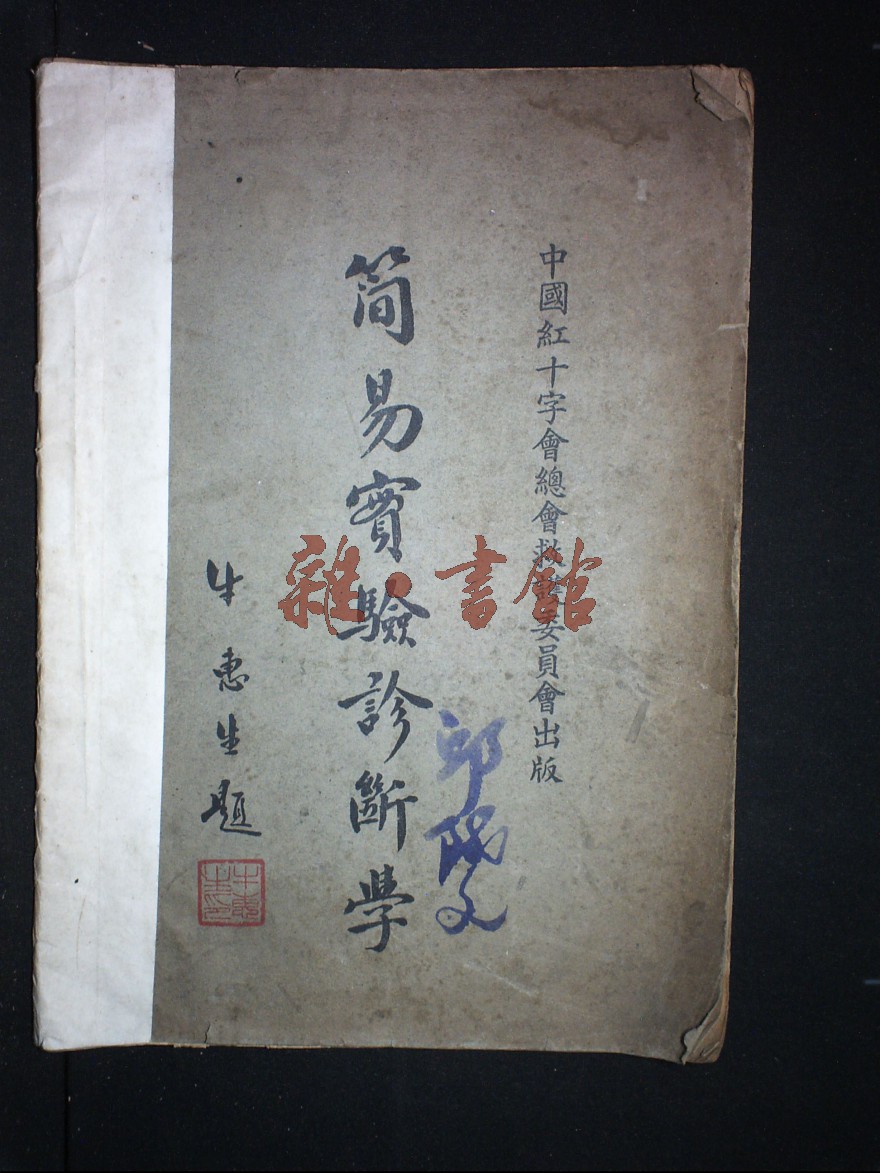 中國紅十字會總會救護委員會出版
簡易實驗診斷學
牛惠生題
邱
文
雜·書館